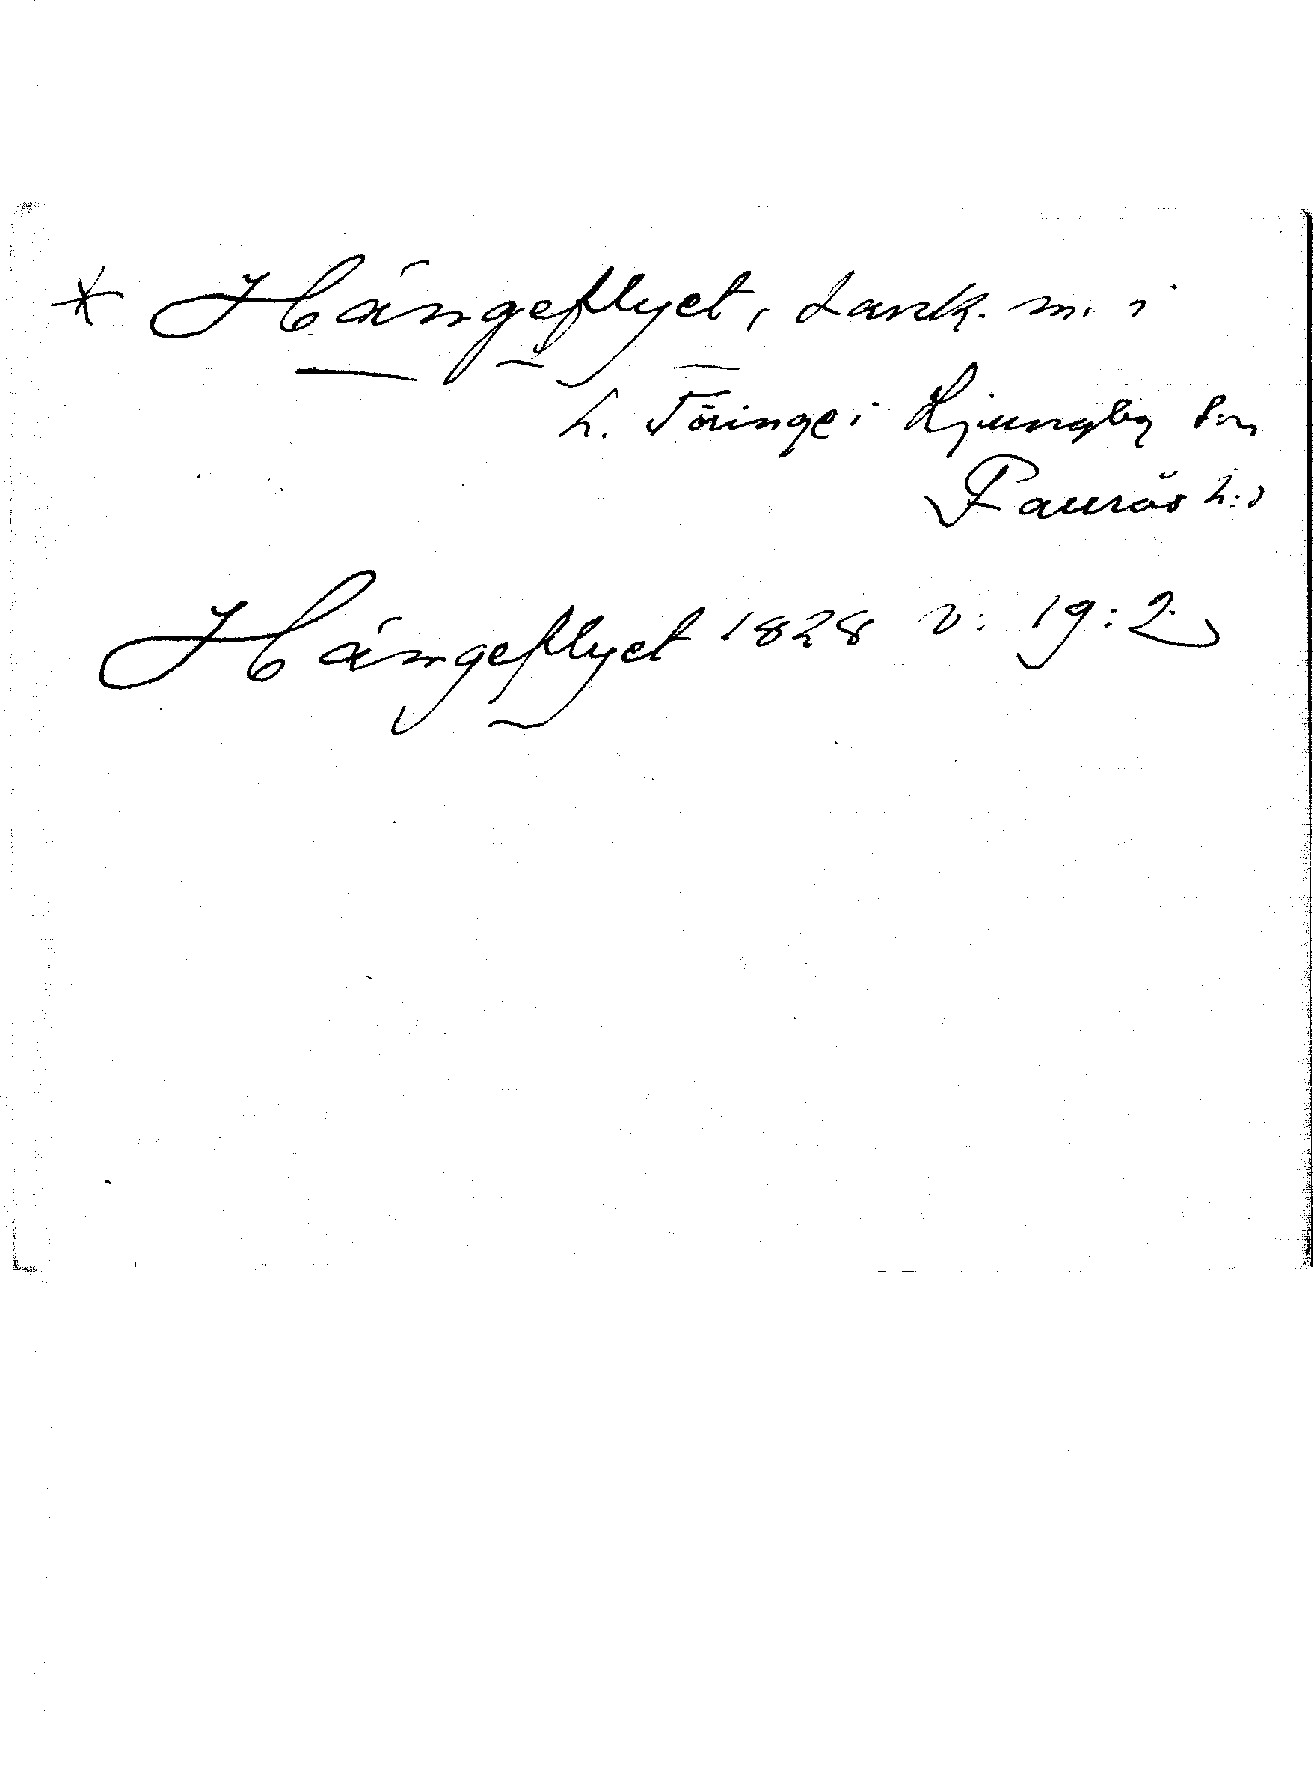 * Hängeflyet, sank. m. i
h. Töringe i Ljungby sn
Faurås h:d
Hängeflyet 1828 v: 19:2